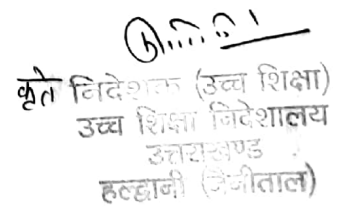 कृते निदेशक (उच्च शिक्षा)
उच्च शिक्षा निदेशालय
उत्तराखण्ड
हल्द्वानी (नैनीताल)